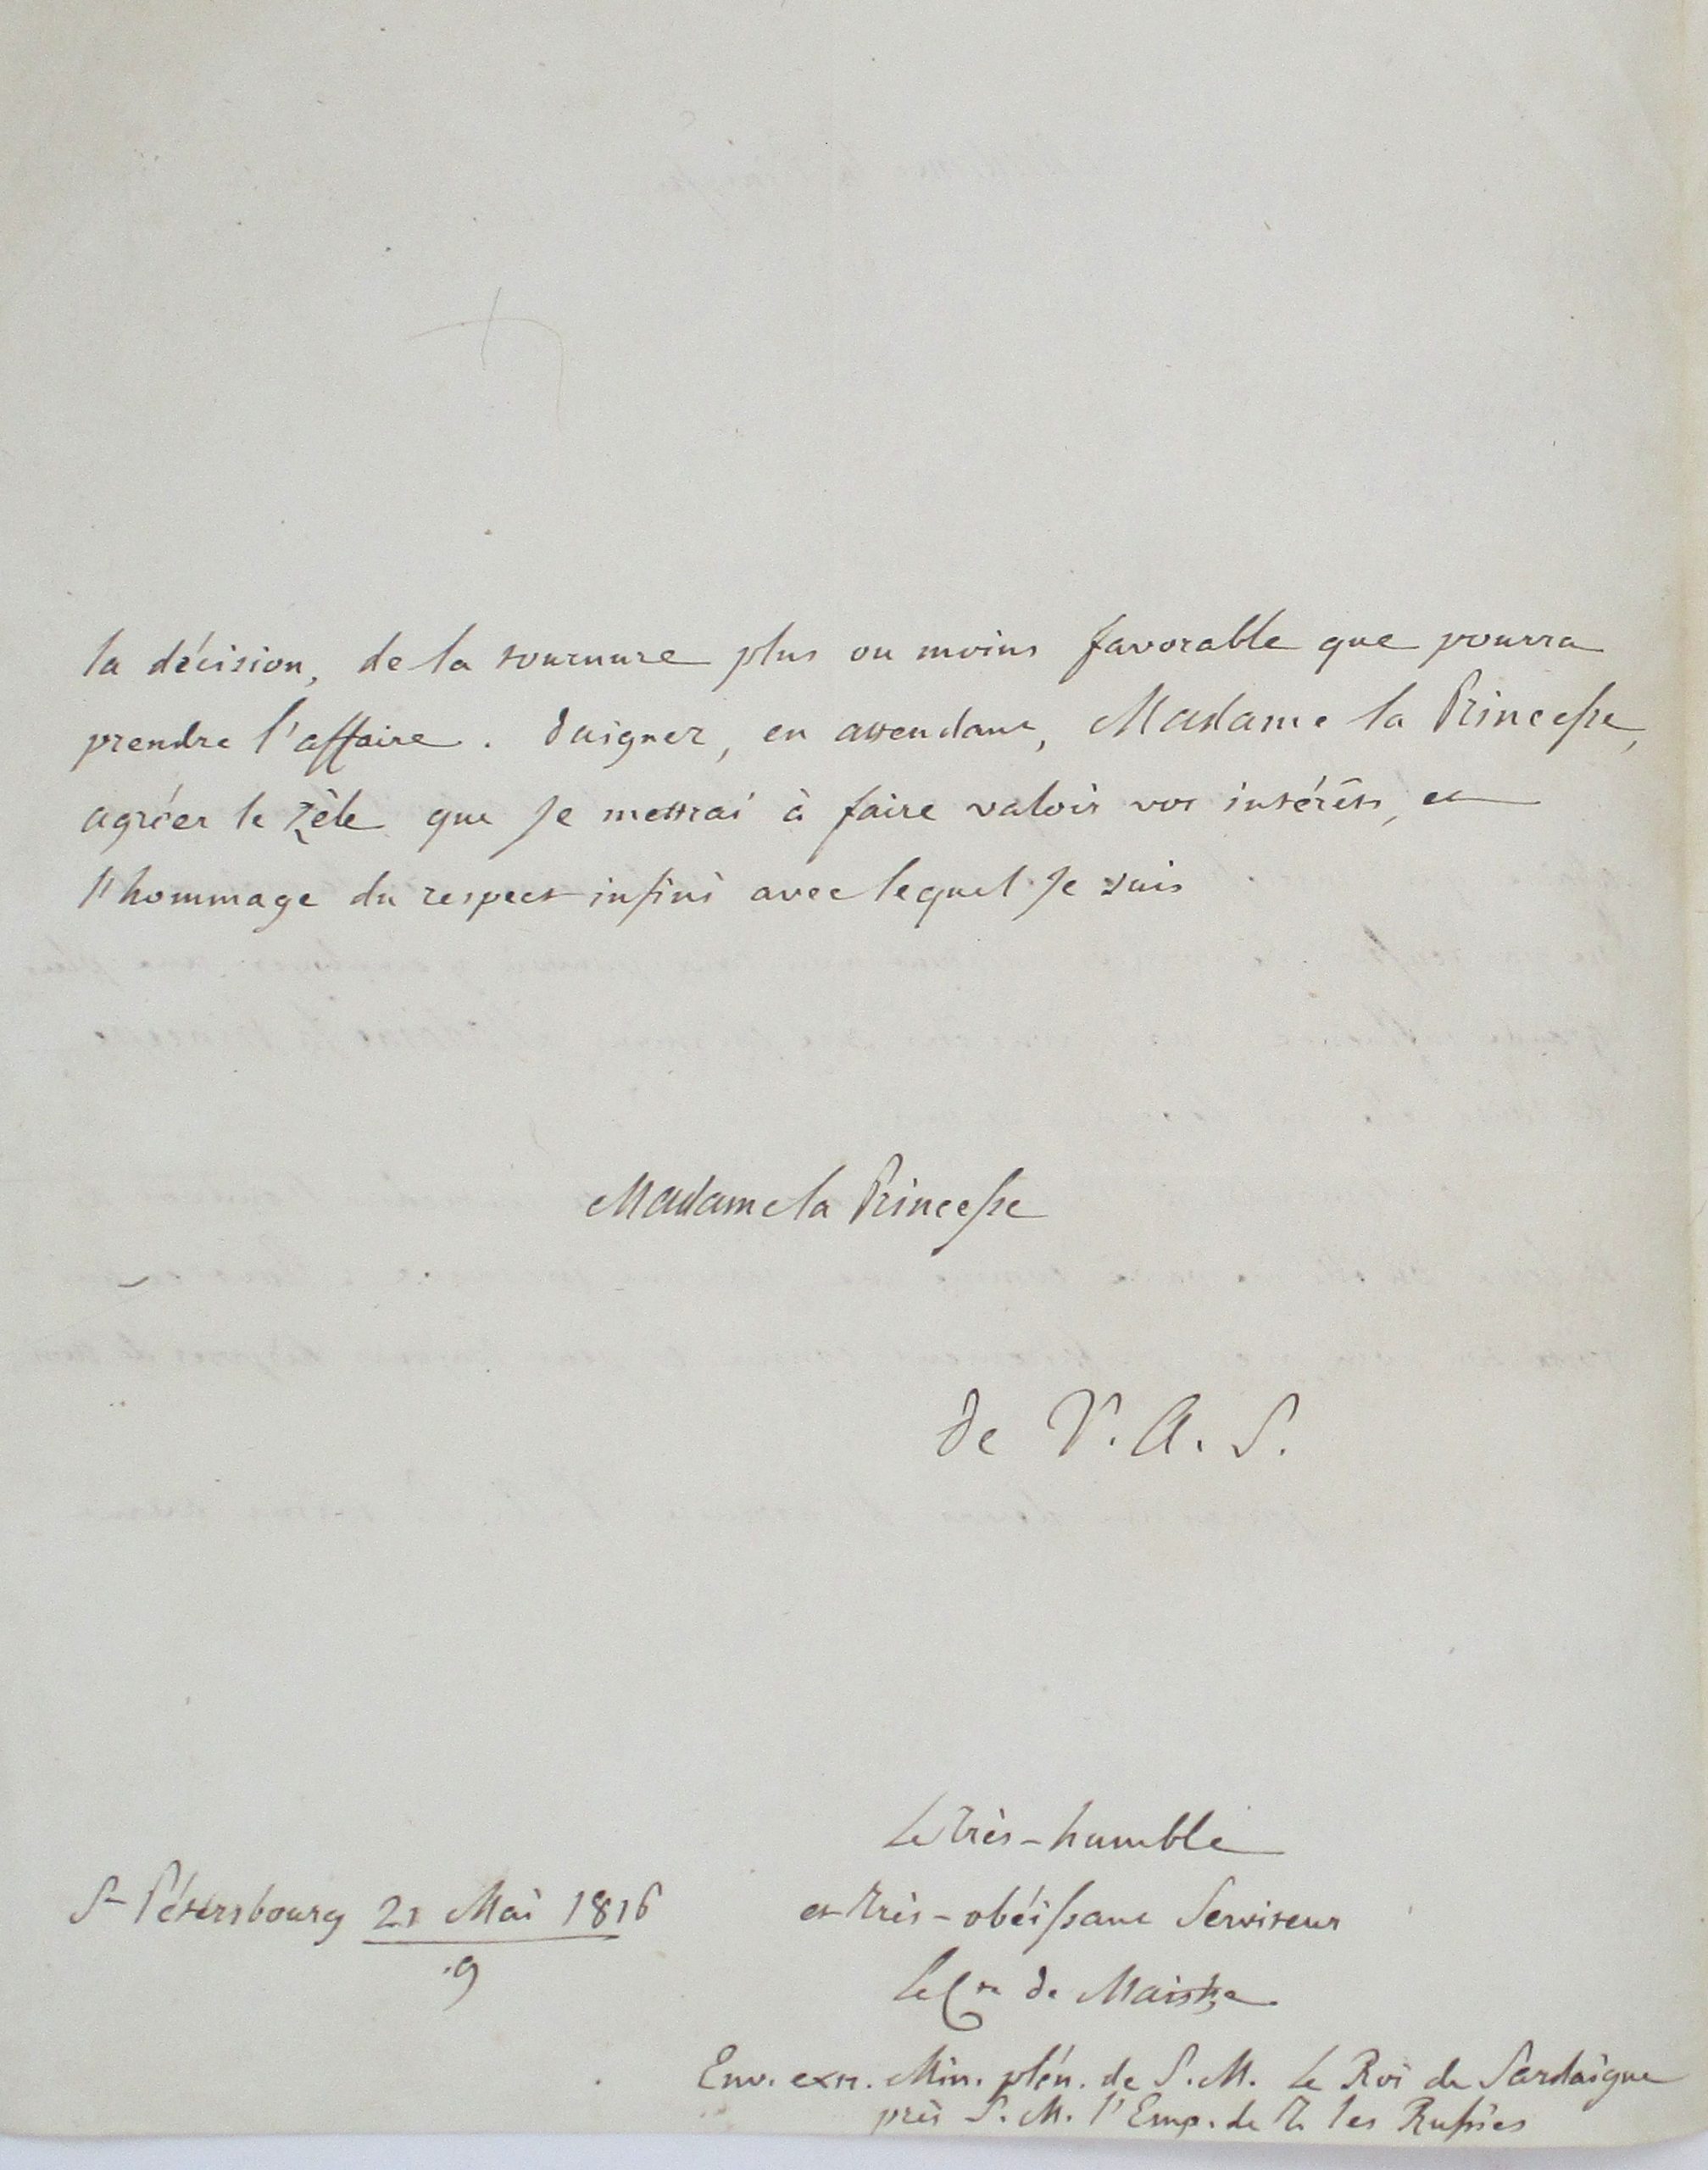 la décision, de la tournure plus ou moins favorable que pourra
prendre l'affaire. Daignez, en attendant, Madame la Princesse,
agréer le zèle que je mettrai à faire valoir vos intérêts, et
l'hommage du respect infini avec lequel je suis
Madame la Princesse
De V. A. S.
Le très-humble
et très-obéissant Serviteur
St Pétersbourg 21 Mai 1816
9
Le Cte de Maistre
Env. extr. Min. plén. de S. M. Le Roi de Sardaigne
près S. M. l'Emp. de T. les Russies